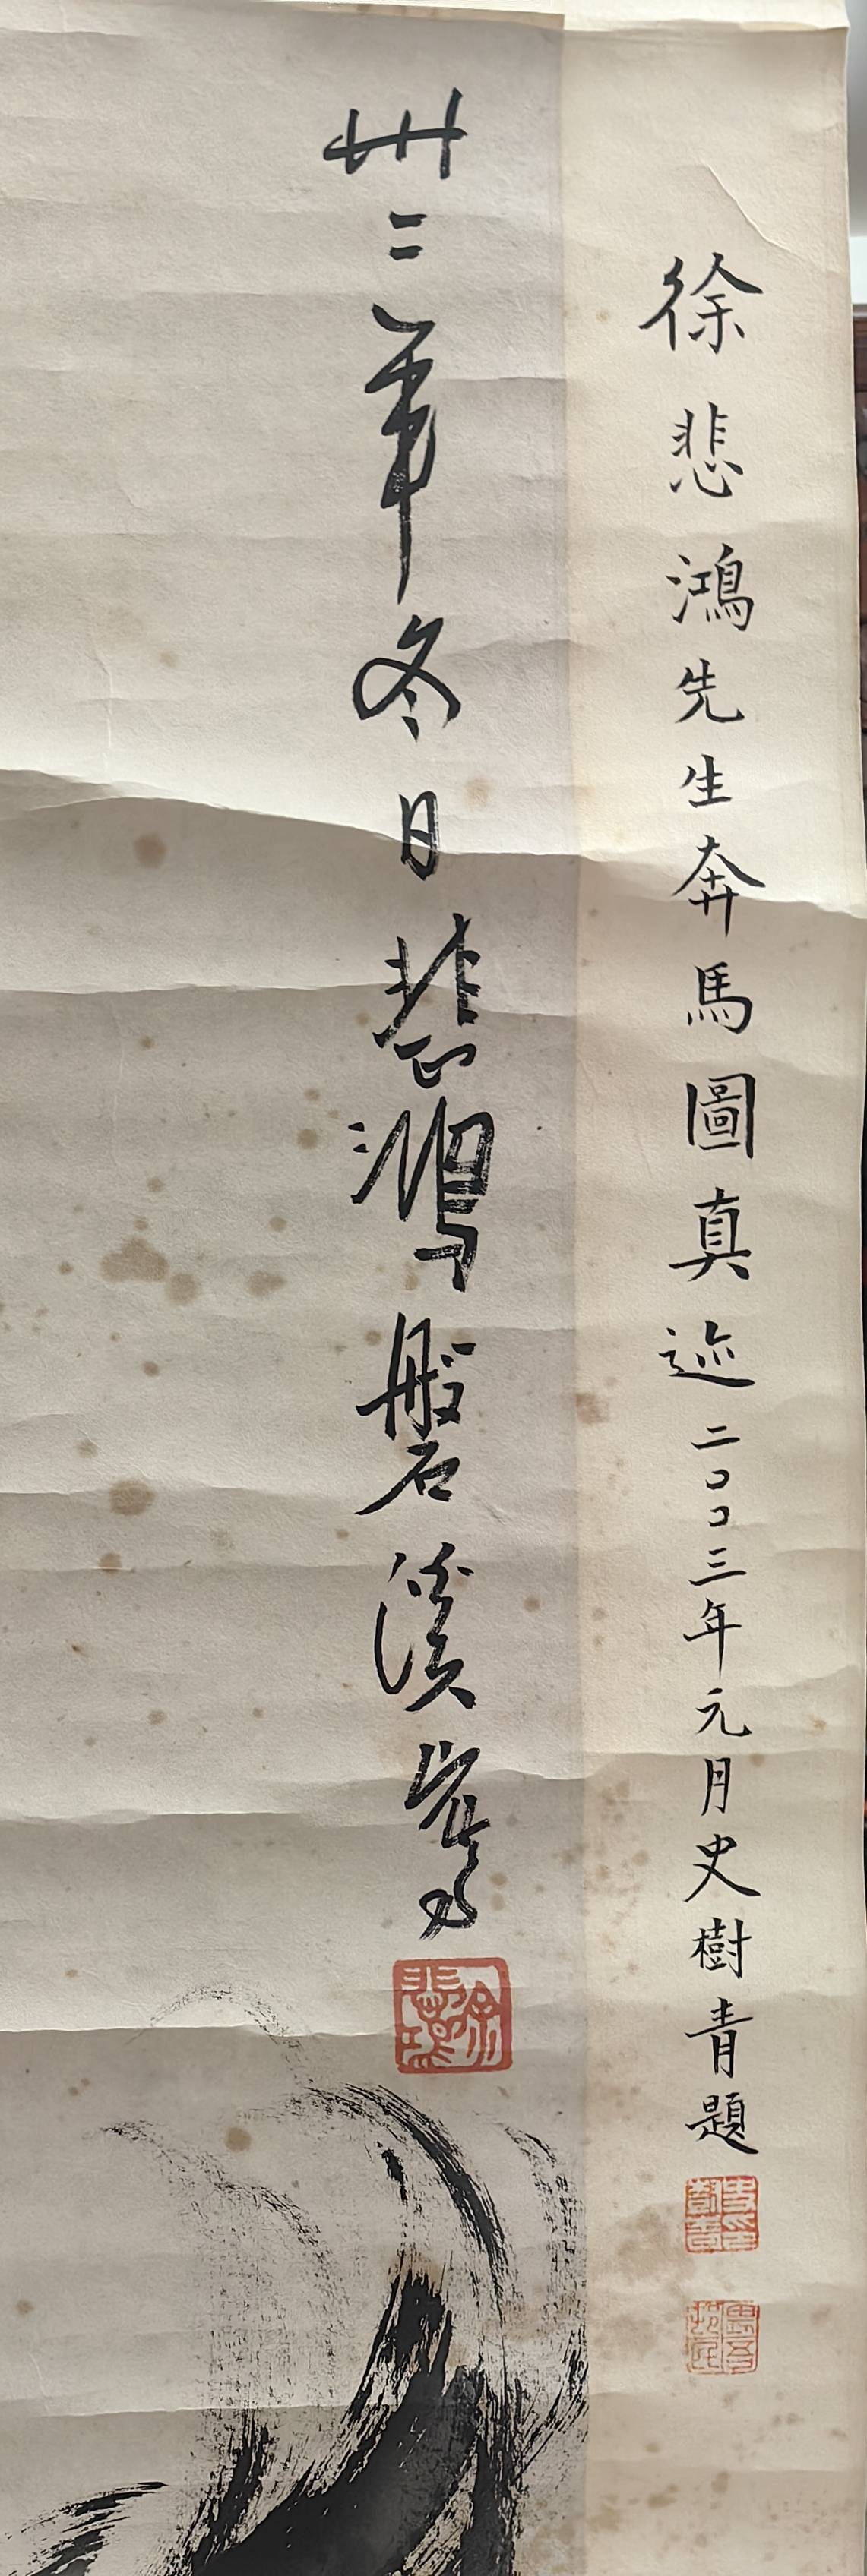 徐悲鴻先生奔馬圖真迹二〇〇三年元月史樹青題
卅三年冬日悲鴻磐溪寫
徐悲鴻